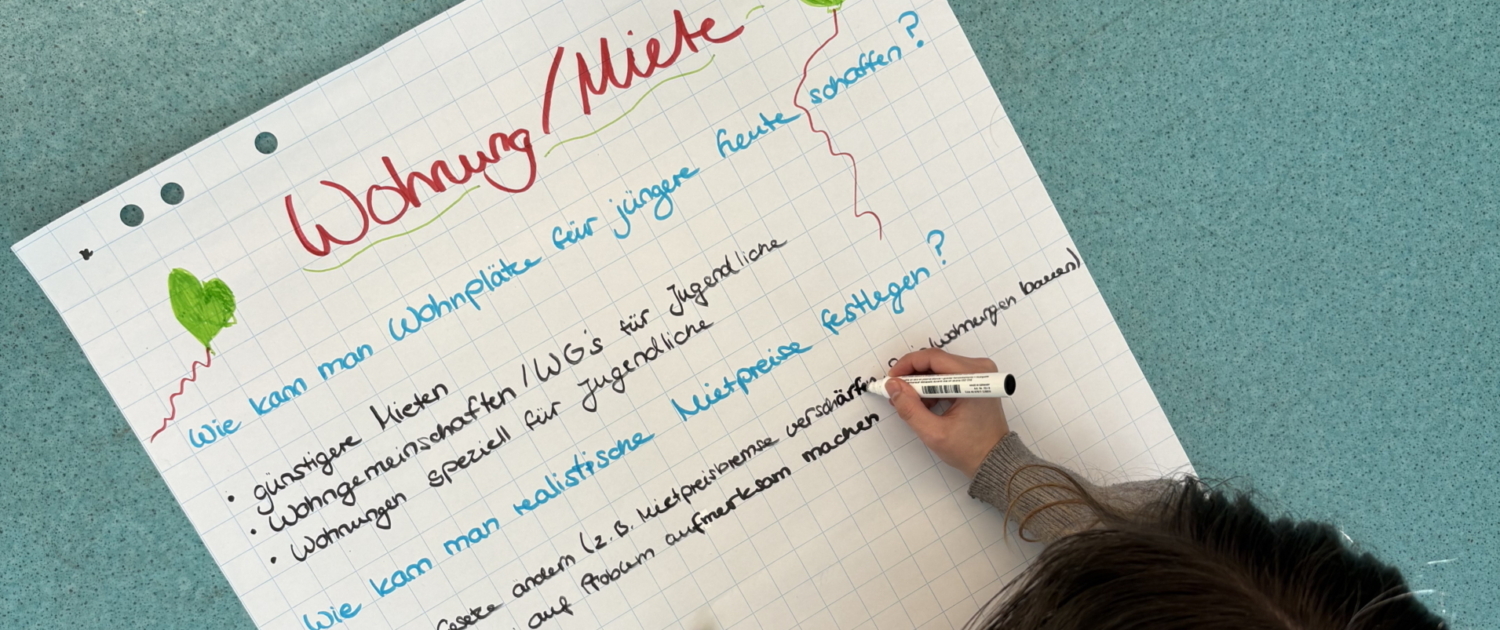 Wohnung/Miete
Wie kann man Wohnplätze für jüngere heute schaffen?
• günstigere Mieten
• Wohngemeinschaften/WG's für Jugendliche
• Wohnungen speziell für Jugendliche
Wie kann man realistische Mietpreise festlegen?
ändern (z.B. Mietpreisbremse verschärfen wohnungen bauen)
auf Problem aufmerksam machen